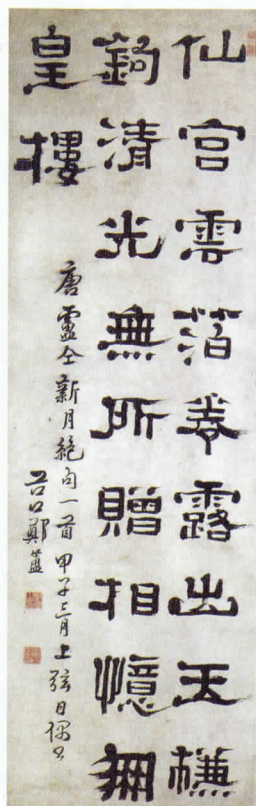 仙宮雲箔卷露出玉槏
鉤清光無所贈相憶
皇樓
唐盧仝新月絕句一首甲子三月上弦日偶書
谷口鄭簠